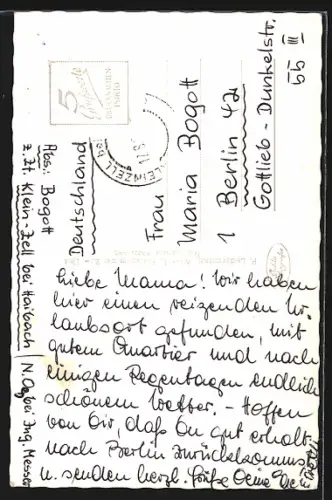 5
BRIEFMARKEN-
PORTO
KLEINZELL
Frau
Maria Bogott
1 Berlin 42
Gottlieb-Dunkelstr.
55 III
Deutschland
Abs: Bogott
z. Zt. Klein-Zell bei Haibach / N. O. bei Ing. Messer
Liebe Mama! Wir haben
hier einen reizenden Ur-
laubsort gefunden, mit
gutem Quartier und nach
einigen Regentagen endlich
schönem Wetter. - Hoffen
von Dir, daß Du gut erholt
nach Berlin zurückkommst
u. senden herzl. Grüße Deine